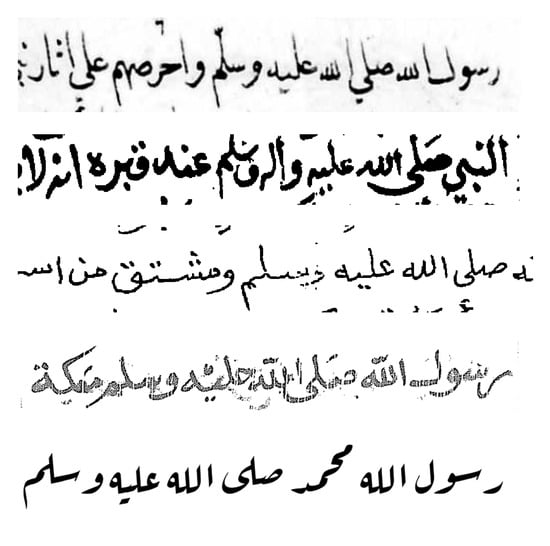 رسول الله صلى الله عليه وسلم واحرصهم على اثار
النبي صلى الله عليه وآله وسلم عند قبره انه لا
صلى الله عليه وسلم ومشتق من
رسول الله صلى الله عليه وسلم
رسول الله محمد صلى الله عليه وسلم